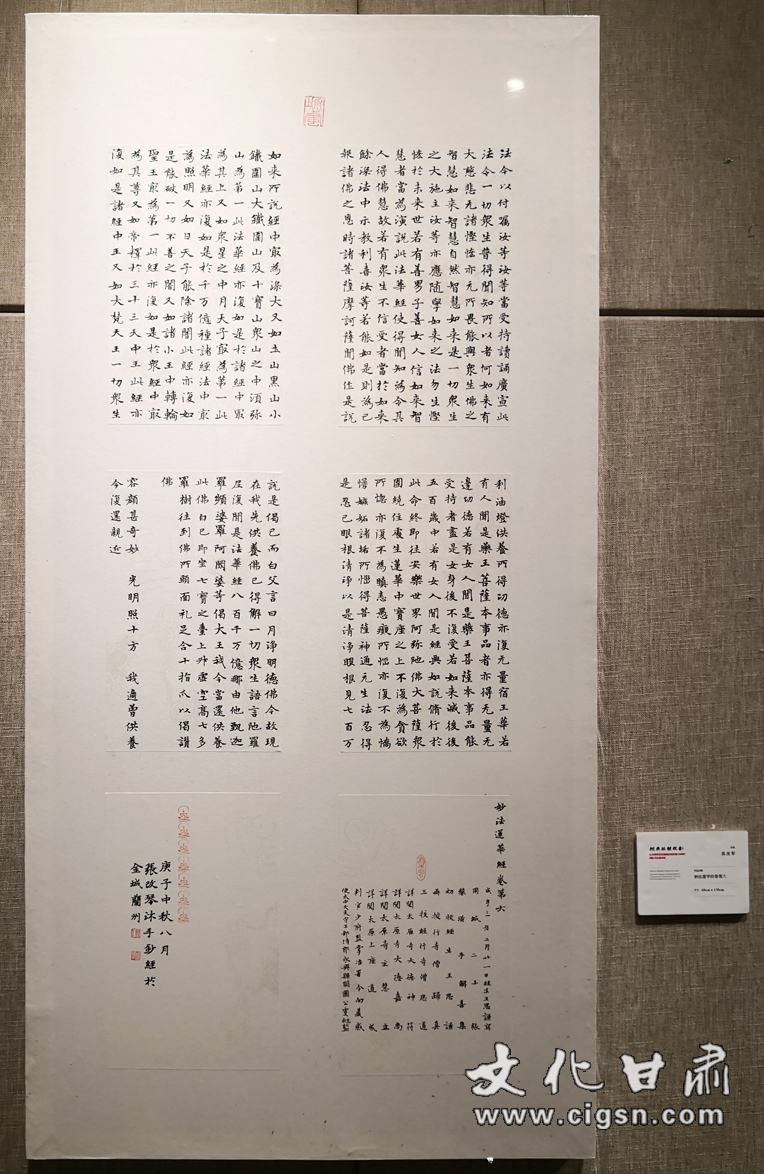 法今以付嘱汝等汝等當受持讀誦廣宣此
法令一切衆生普得聞知所以者何如来有
大慈悲无諸慳悋亦无所畏能與衆生佛之
智慧如来智慧自然智慧如来是一切衆生
之大施主汝等亦應随學如来之法勿生慳
悋於未来世若有善男子善女人信如来智
慧者當為演說此法華經使得聞知為令其
人得佛慧故若有衆生不信受者當於如来
餘深法中示教利喜汝等若能如是則為已
報諸佛之恩時諸菩薩摩訶薩聞佛作是說
如来所說經中寂為深大又如土山黒山小
鐵圍山大鐵圍山及十寶山衆山之中湏弥
山為第一此法華經亦復如是於諸經中寂
為其上又如衆星之中月天子寂為第一此
法華經亦復如是於千万億種諸經法中寂
為照明又如日天子能除諸闇此經亦復如
是能破一切不善之闇又如諸小王中轉輪
聖王寂為第一此經亦復如是於衆經中寂
為其尊又如帝釋於三十三天中王此經亦
復如是諸經中王又如大梵天王一切衆生
利油燈供養所得功德亦復无量宿王華若
有人聞是藥王菩薩本事品者亦得无量无
邊功德若有女人聞是藥王菩薩本事品能
受持者盡是女身後不復受若如来滅後後
五百歲中若有女人聞是經典如說脩行於
此命終即往安樂世界阿弥陁佛大菩薩衆
圍繞住處生蓮華中寶座之上不復為貪欲
所惱亦復不為瞋恚愚癡所惱亦復不為憍
慢嫉妬諸垢所惱得菩薩神通无生法忍得
是忍已眼根清淨以是清淨眼根見七百万
說是偈已而白父言日月淨明德佛今故現
在我先供養佛已得解一切衆生語言陁羅
尼復聞是法華經八百千万億那由他甄迦
羅頻婆羅阿閦婆等偈大王我今當還供養
此佛白已即坐七寶之臺上升虚空高七多
羅樹往到佛所頭面礼足合十指爪以偈讃
佛
容顔甚奇妙 光明照十方 我適曽供養
今復還親近
妙法蓮華經卷第六
用紙二十張
裝潢手解善集
初校經生王思謙
再校經行寺僧歸真
三校經行寺僧思道
詳閱太原寺大德神符
詳閱太原寺大德嘉尚
詳閱太原寺主慧立
詳閱太原寺上座道成
庚子中秋八月
張改琴沐手鈔經於
金城蘭州
文化甘肃
www.cigsn.com